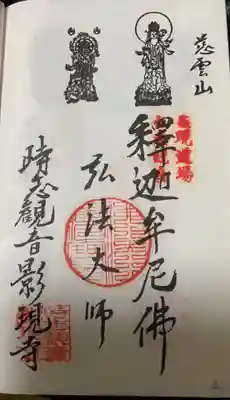 慈雲山
釋迦牟尼佛
弘法大師
時志觀音影現寺